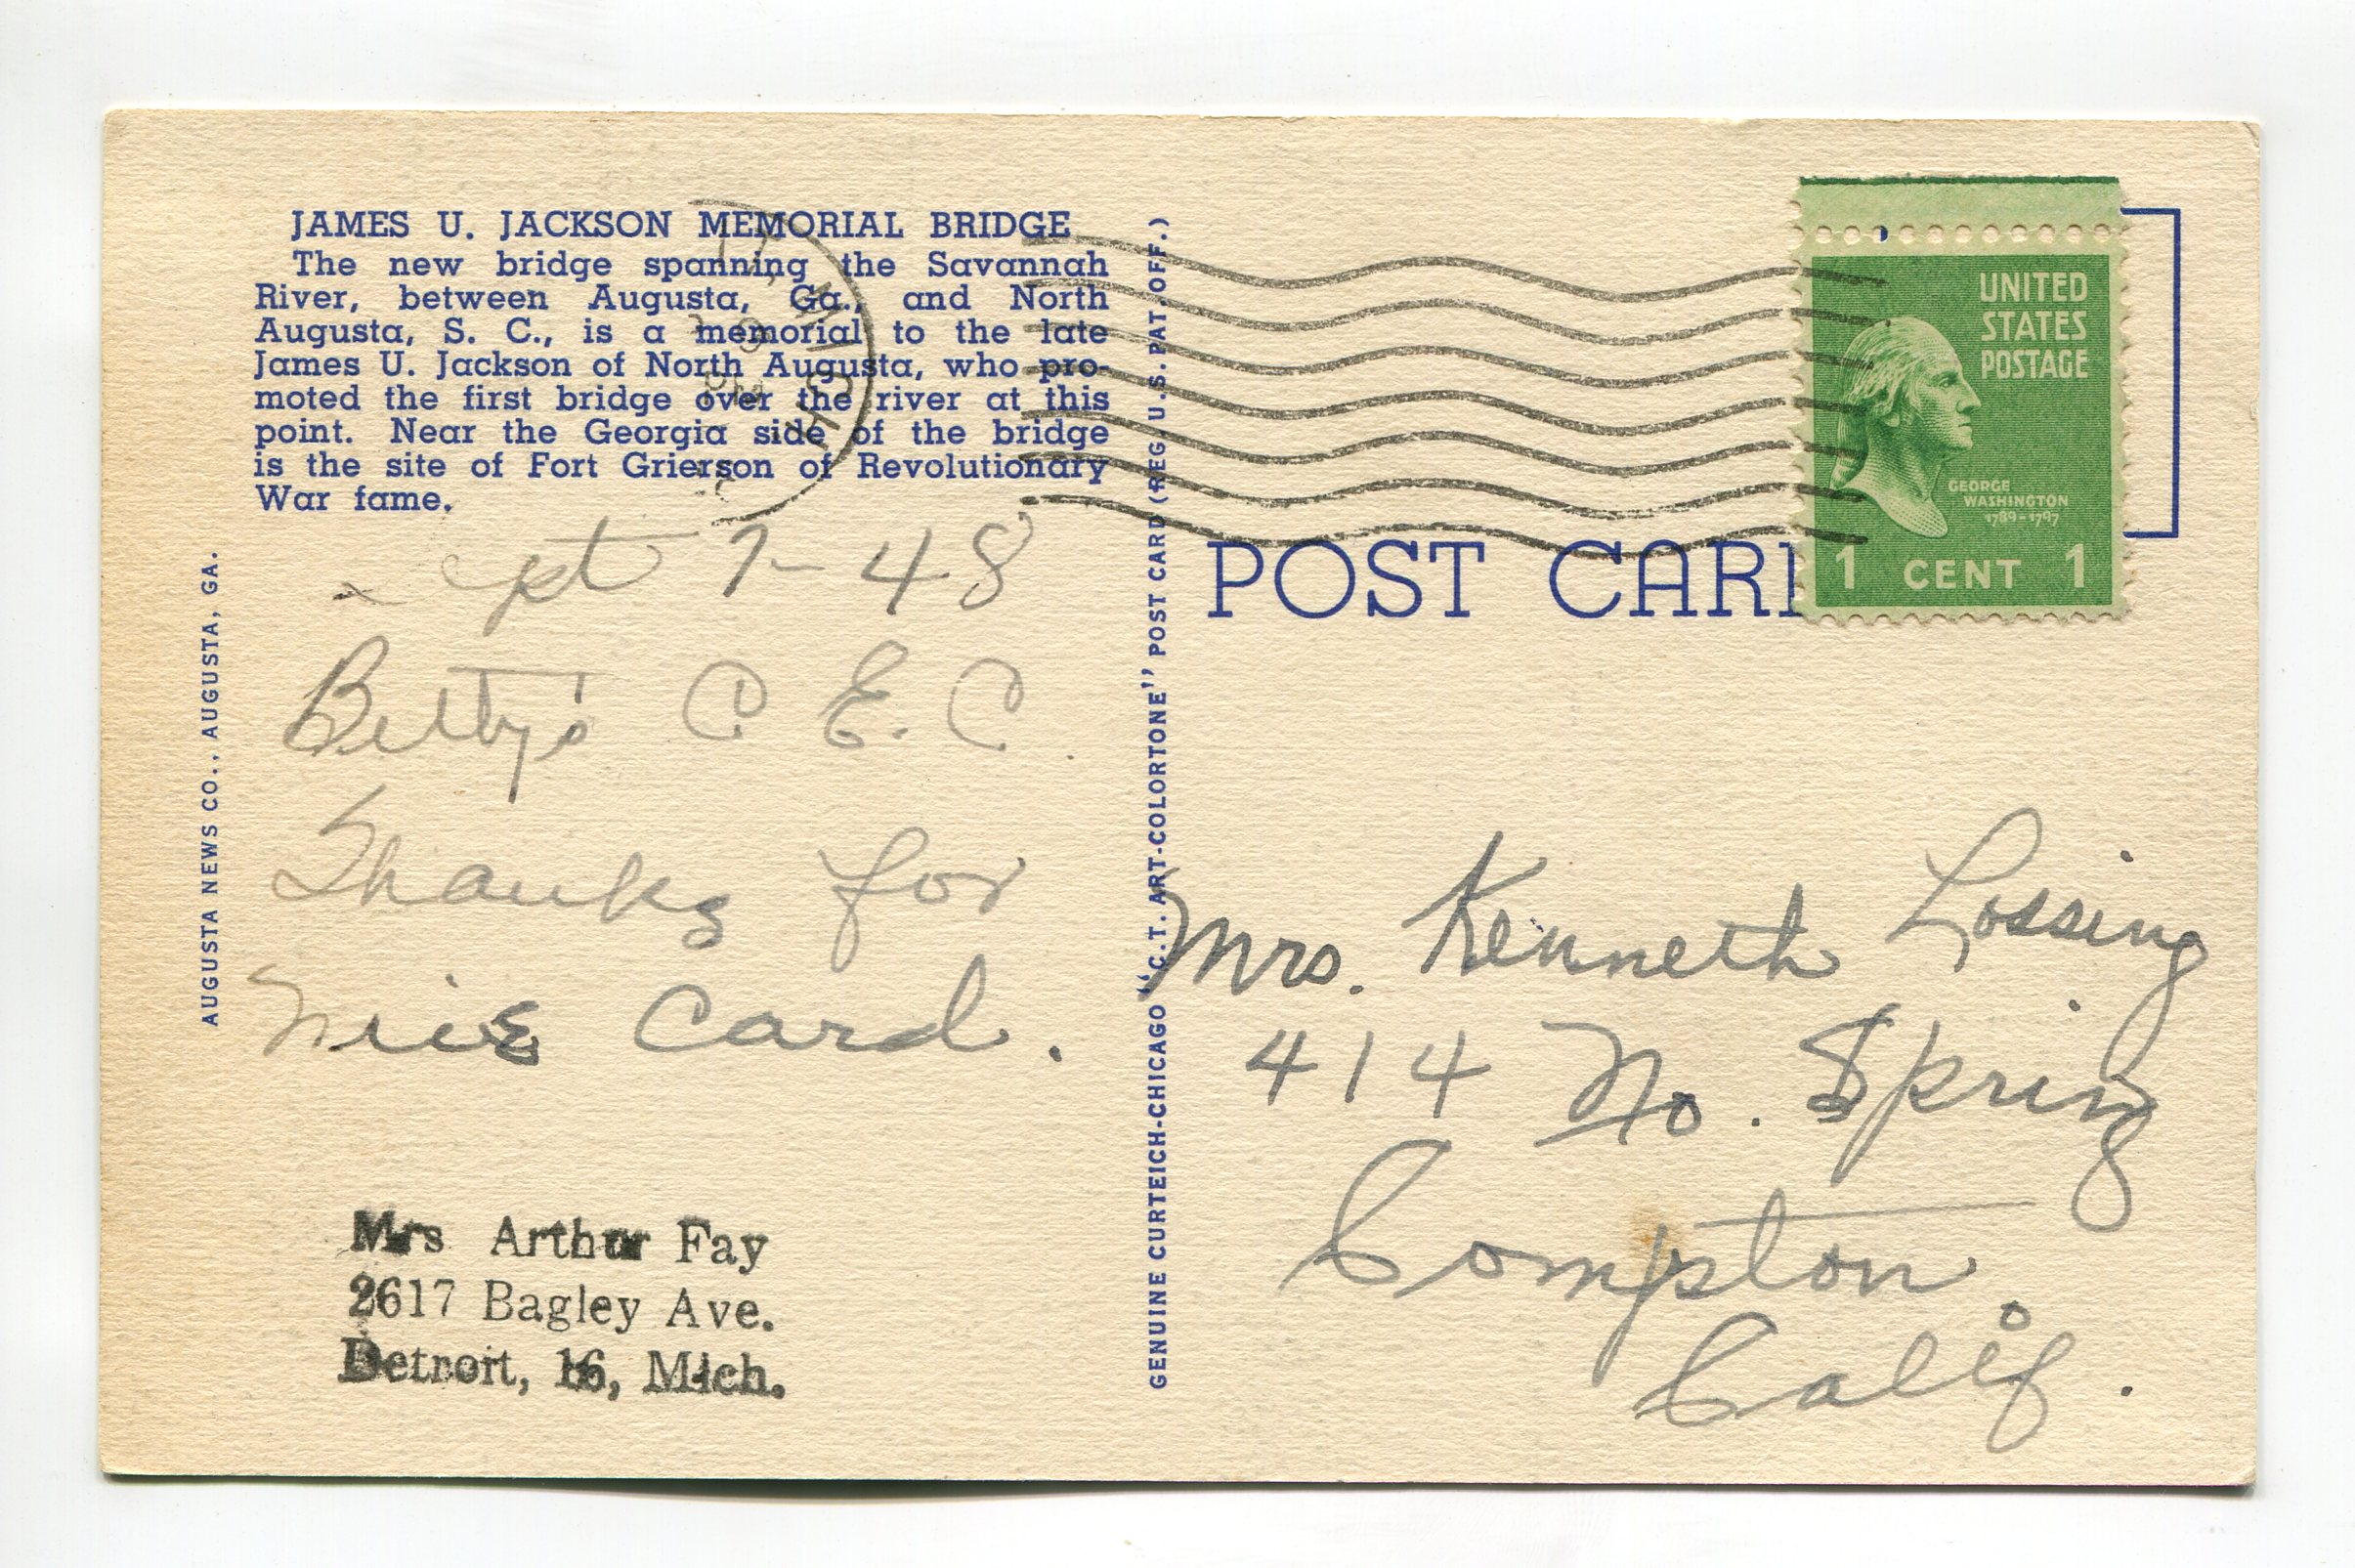 JAMES U. JACKSON MEMORIAL BRIDGE
The new bridge spanning the Savannah
River, between Augusta, Ga., and North
Augusta, S. C., is a memorial to the late
James U. Jackson of North Augusta, who pro-
moted the first bridge over the river at this
point. Near the Georgia side of the bridge
is the site of Fort Grierson of Revolutionary
War fame.
pt 7-48
Betty's C. E. C.
Thanks for
nice Card.
Mrs Arthur Fay
2617 Bagley Ave.
Detroit, 16, Mich.
AUGUSTA NEWS CO., AUGUSTA, GA.
GENUINE CURTEICH-CHICAGO "C.T. ART-COLORTONE" POST CARD (REG. U.S. PAT. OFF.)
MICH
PM
POST CAR
UNITED
STATES
POSTAGE
GEORGE
WASHINGTON
1789-1797
1 CENT 1
Mrs. Kenneth Lossing
414 No. Spring
Compton,
Calif.